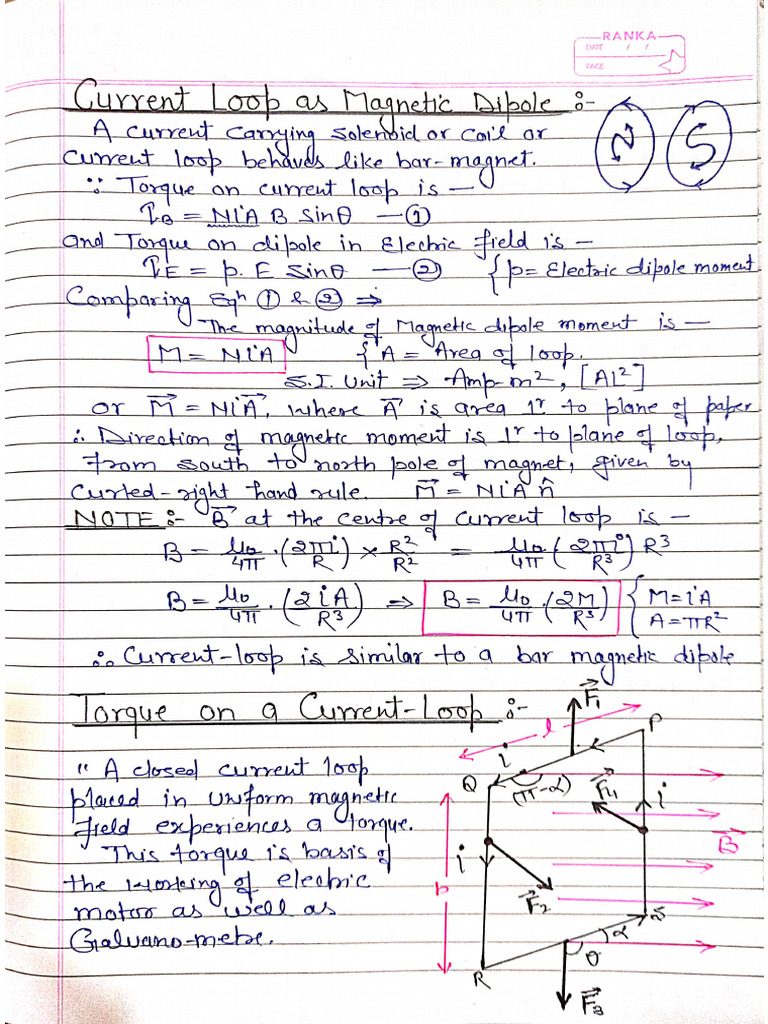 RANKA
DATE / /
PAGE
Current Loop as Magnetic Dipole :-
N S
A current carrying solenoid or coil or
current loop behaves like bar-magnet.
∵ Torque on current loop is —
τ_B = NiA B Sinθ —①
and Torque on dipole in Electric field is —
τ_E = p. E Sinθ —② { p = Electric dipole moment
Comparing Eqⁿ ① & ② ⇒
The magnitude of Magnetic dipole moment is —
M = NiA { A = Area of loop.
S.I. Unit ⇒ Amp-m², [AL²]
or M⃗ = NiA⃗, where A⃗ is area 1ʳ to plane of paper
∴ Direction of magnetic moment is 1ʳ to plane of loop,
from south to north pole of magnet, given by
curled-right hand rule. M⃗ = NiA n̂
NOTE :- B⃗ at the centre of current loop is —
B = μ₀/4π . (2πi/R) × R²/R² = μ₀/4π (2πi/R³) R³
B = μ₀/4π . (2iA/R³) ⇒ B = μ₀/4π . (2M/R³) { M = iA
A = πR²
∴ Current-loop is similar to a bar magnetic dipole
Torque on a Current-Loop :-
" A closed current loop
placed in uniform magnetic
field experiences a torque.
This torque is basis of
the working of electric
motor as well as
Galvano-metre.
F⃗₁
l
P
i
Q
(π-α)
F⃗₄
i
B⃗
i
b
F⃗₂
S
α
θ
R
F⃗₃